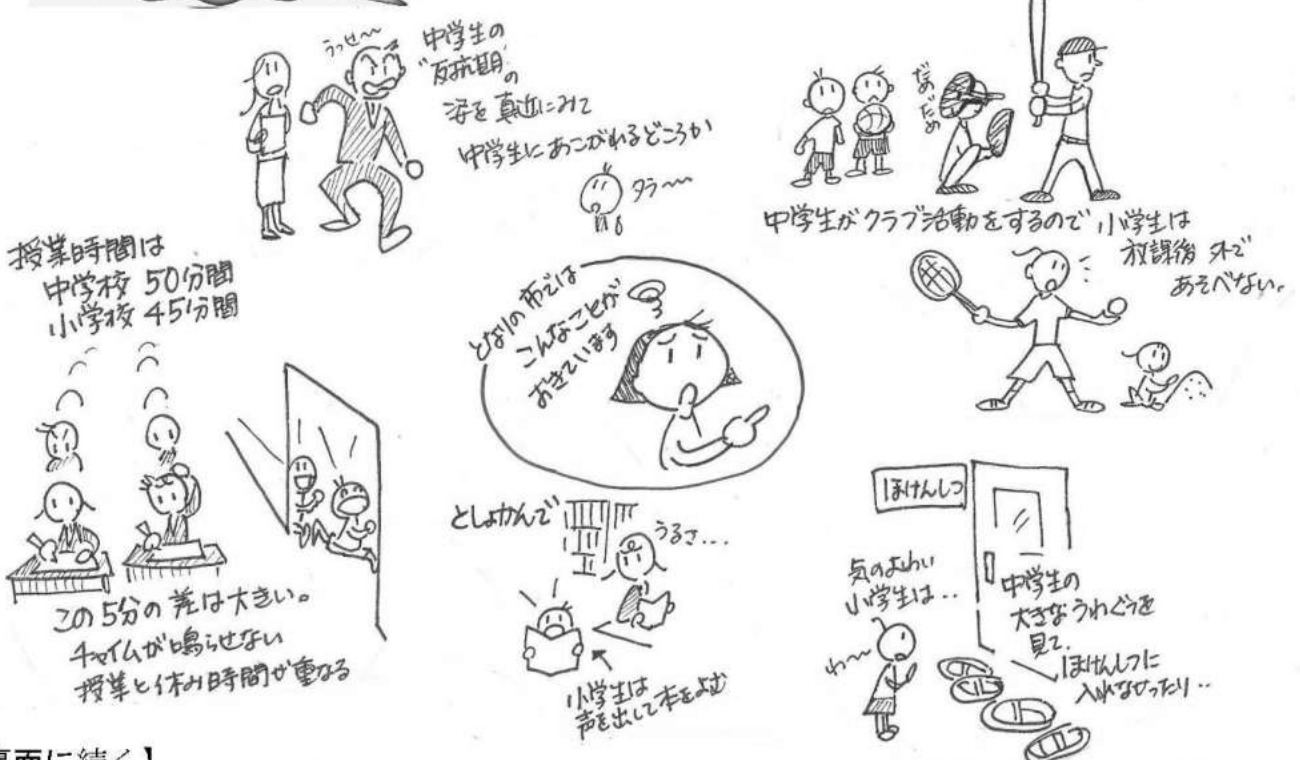 うっせ〜
中学生の
"反抗期"の
姿を真近にみて
中学生にあこがれるどころか
タラ〜
だめだめ
中学生がクラブ活動をするので小学生は
放課後 外で
あそべない。
授業時間は
中学校 50分間
小学校 45分間
この5分の差は大きい。
チャイムが鳴らせない
授業と休み時間が重なる
となりの市では
こんなことが
おきています
としょかんで
うるさ...
小学生は
声を出して本をよむ
ほけんしつ
気のよわい
小学生は..
わ〜
中学生の
大きなうわぐつを
見て、
ほけんしつに
入れなかったり..
に続く】